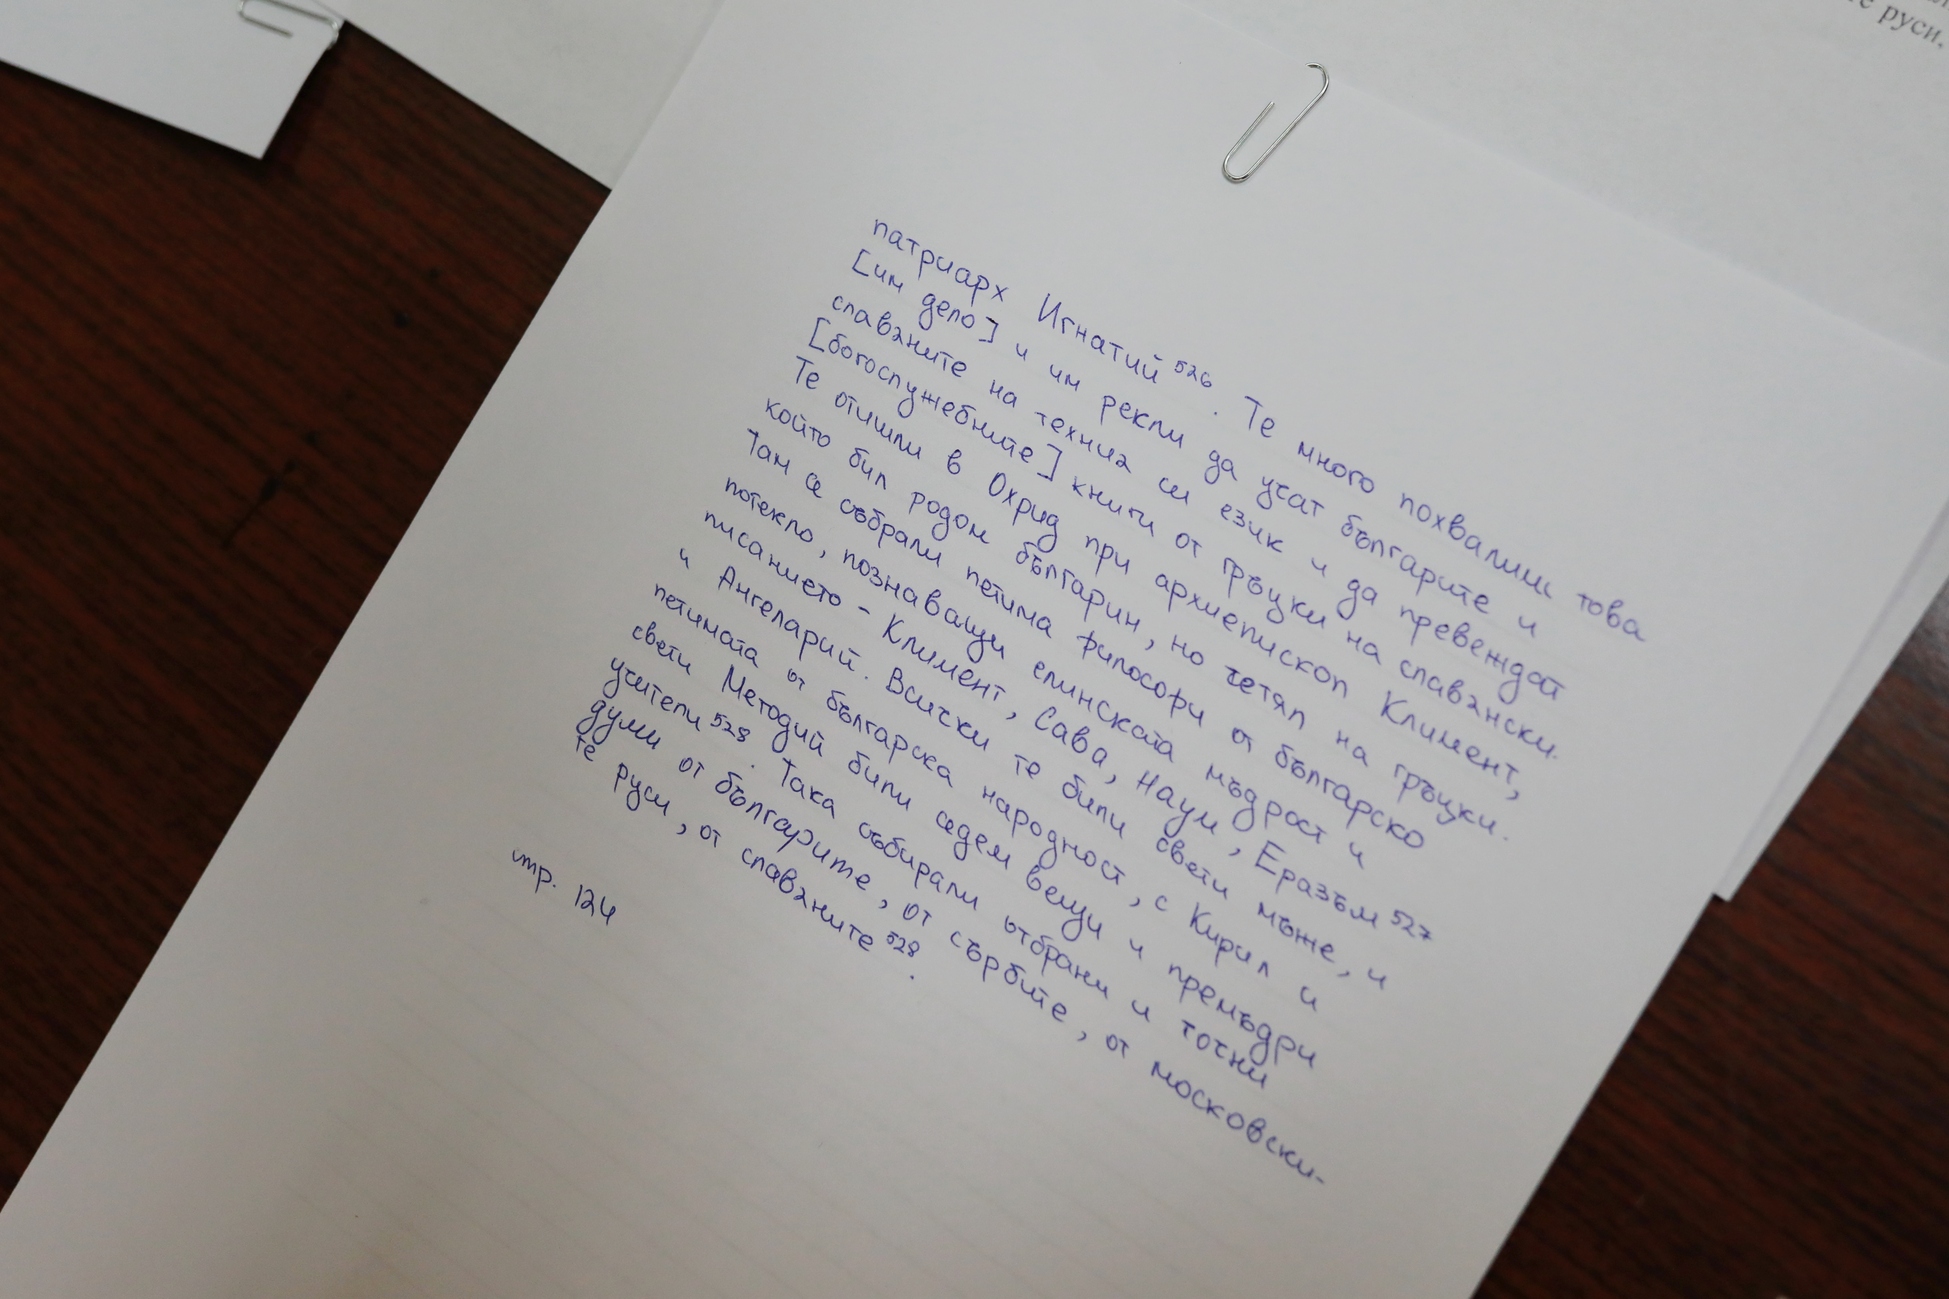 те руси,
патриарх Игнатий 526. Те много похвалили това
[им дело] и им рекли да учат българите и
славяните на техния си език и да превеждат
[богослужебните] книги от гръцки на славянски.
Те отишли в Охрид при архиепископ Климент,
който бил родом българин, но четял на гръцки.
Там се събрали петима философи от българско
потекло, познаващи елинската мъдрост и
писанието - Климент, Сава, Наум, Еразъм 527
и Ангеларий. Всички те били свети мъже, и
петимата от българска народност, с Кирил и
свети Методий били седем вещи и премъдри
учители 528. Така събирали отбрани и точни
думи от българите, от сърбите, от московски-
те руси, от славяните 528.
стр. 124